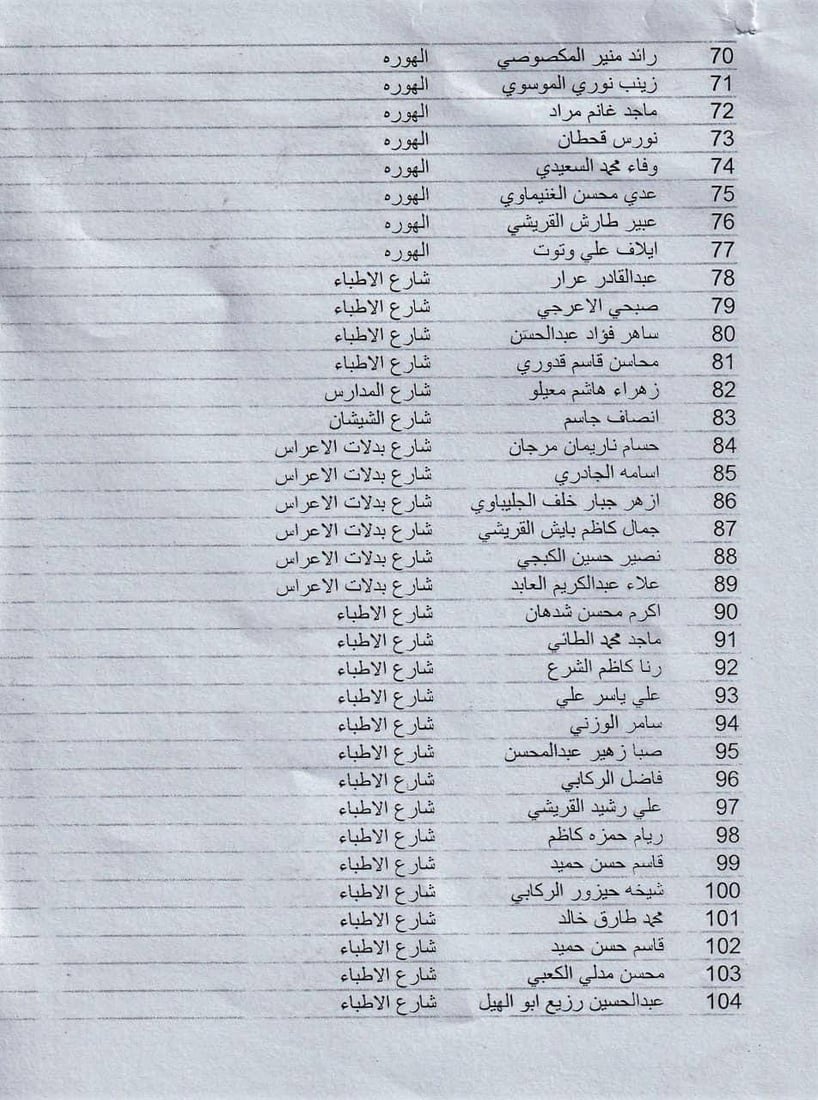 70 رائد منير المكصوصي الهوره
71 زينب نوري الموسوي الهوره
72 ماجد غانم مراد الهوره
73 نورس قحطان الهوره
74 وفاء محمد السعيدي الهوره
75 عدي محسن الغنيماوي الهوره
76 عبير طارش القريشي الهوره
77 ايلاف علي وتوت الهوره
78 عبدالقادر عرار شارع الاطباء
79 صبحي الاعرجي شارع الاطباء
80 ساهر فؤاد عبدالحسن شارع الاطباء
81 محاسن قاسم قدوري شارع الاطباء
82 زهراء هاشم معيلو شارع المدارس
83 انصاف جاسم شارع الشيشان
84 حسام ناريمان مرجان شارع بدلات الاعراس
85 اسامه الجادري شارع بدلات الاعراس
86 ازهر جبار خلف الجليباوي شارع بدلات الاعراس
87 جمال كاظم بايش القريشي شارع بدلات الاعراس
88 نصير حسين الكبجي شارع بدلات الاعراس
89 علاء عبدالكريم العابد شارع بدلات الاعراس
90 اكرم محسن شدهان شارع الاطباء
91 ماجد محمد الطائي شارع الاطباء
92 رنا كاظم الشرع شارع الاطباء
93 علي ياسر علي شارع الاطباء
94 سامر الوزني شارع الاطباء
95 صبا زهير عبدالمحسن شارع الاطباء
96 فاضل الركابي شارع الاطباء
97 علي رشيد القريشي شارع الاطباء
98 ريام حمزه كاظم شارع الاطباء
99 قاسم حسن حميد شارع الاطباء
100 شيخه حيزور الركابي شارع الاطباء
101 محمد طارق خالد شارع الاطباء
102 قاسم حسن حميد شارع الاطباء
103 محسن مدلي الكعبي شارع الاطباء
104 عبدالحسين رزيع ابو الهيل شارع الاطباء